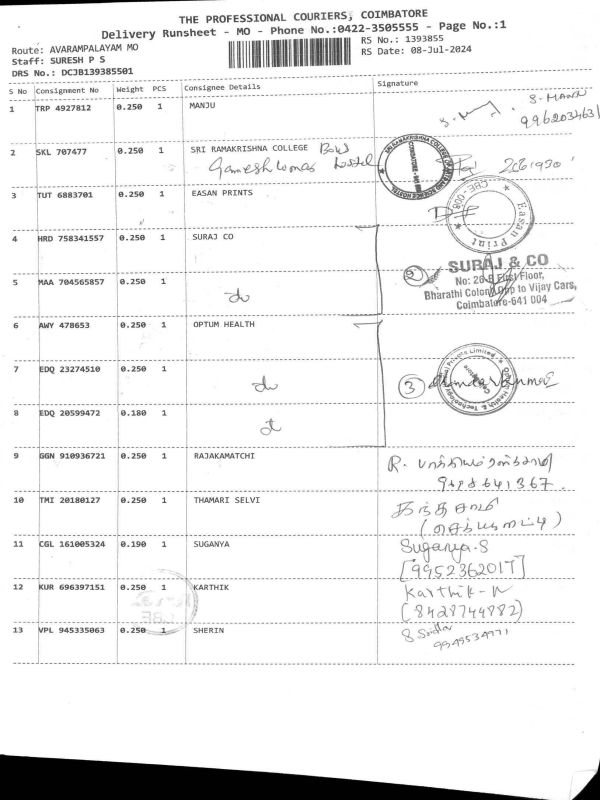 THE PROFESSIONAL COURIERS, COIMBATORE
Delivery Runsheet - MO - Phone No.:0422-3505555 - Page No.:1
Route: AVARAMPALAYAM MO
Staff: SURESH P S
DRS No.: DCJB139385501
RS No.: 1393855
RS Date: 08-Jul-2024
S No Consignment No Weight PCS Consignee Details Signature
1 TRP 4927812 0.250 1 MANJU
2 SKL 707477 0.250 1 SRI RAMAKRISHNA COLLEGE
Hostel
3 TUT 6883701 0.250 1 EASAN PRINTS
Easan Print
CBE-008
4 HRD 758341557 0.250 1 SURAJ CO
SURAJ & CO
No: 26-B First Floor,
Bharathi Colony Opp to Vijay Cars,
Coimbatore-641 004
5 MAA 704565857 0.250 1
6 AWY 478653 0.250 1 OPTUM HEALTH
7 EDQ 23274510 0.250 1
3
8 EDQ 20599472 0.180 1
9 GGN 910936721 0.250 1 RAJAKAMATCHI
10 TMI 20180127 0.250 1 THAMARI SELVI
11 CGL 161005324 0.190 1 SUGANYA
Suganya-S
[9952362017]
12 KUR 696397151 0.250 1 KARTHIK
Karthik-N
(8428744882)
13 VPL 945335063 0.250 1 SHERIN